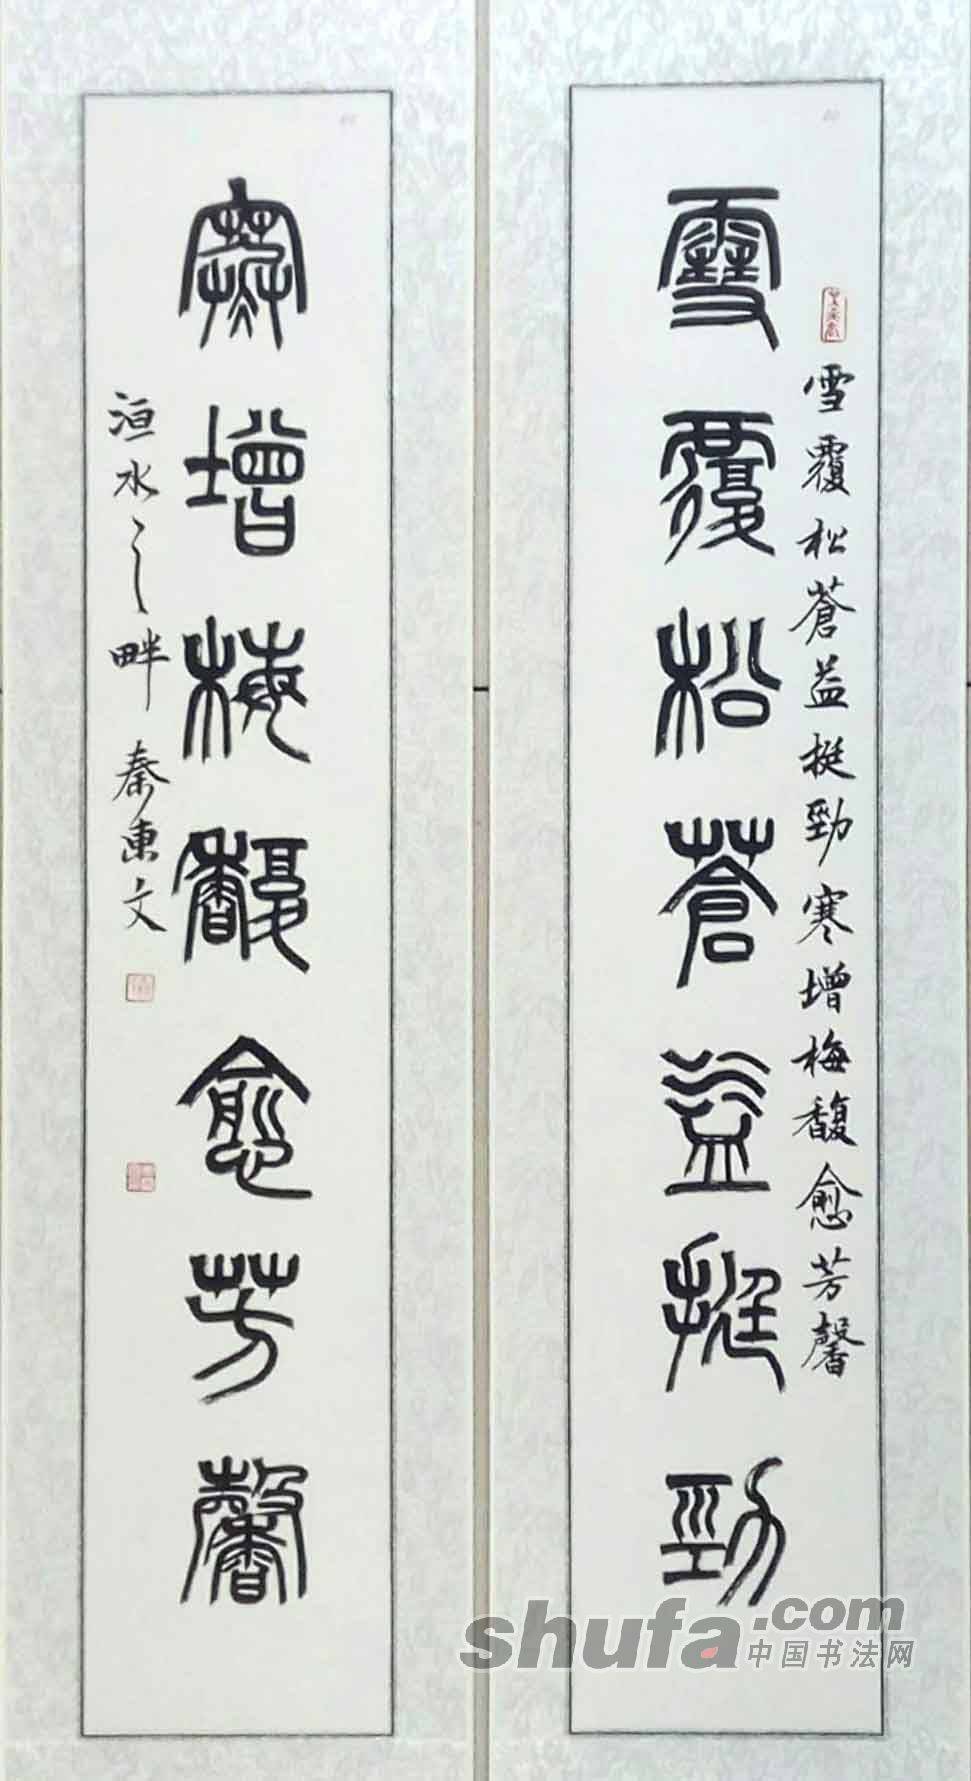 雪覆松蒼益挺勁
雪覆松蒼益挺勁寒增梅馥愈芳馨
寒增梅馥愈芳馨
洹水之畔 秦東文
shufa.com
中国书法网